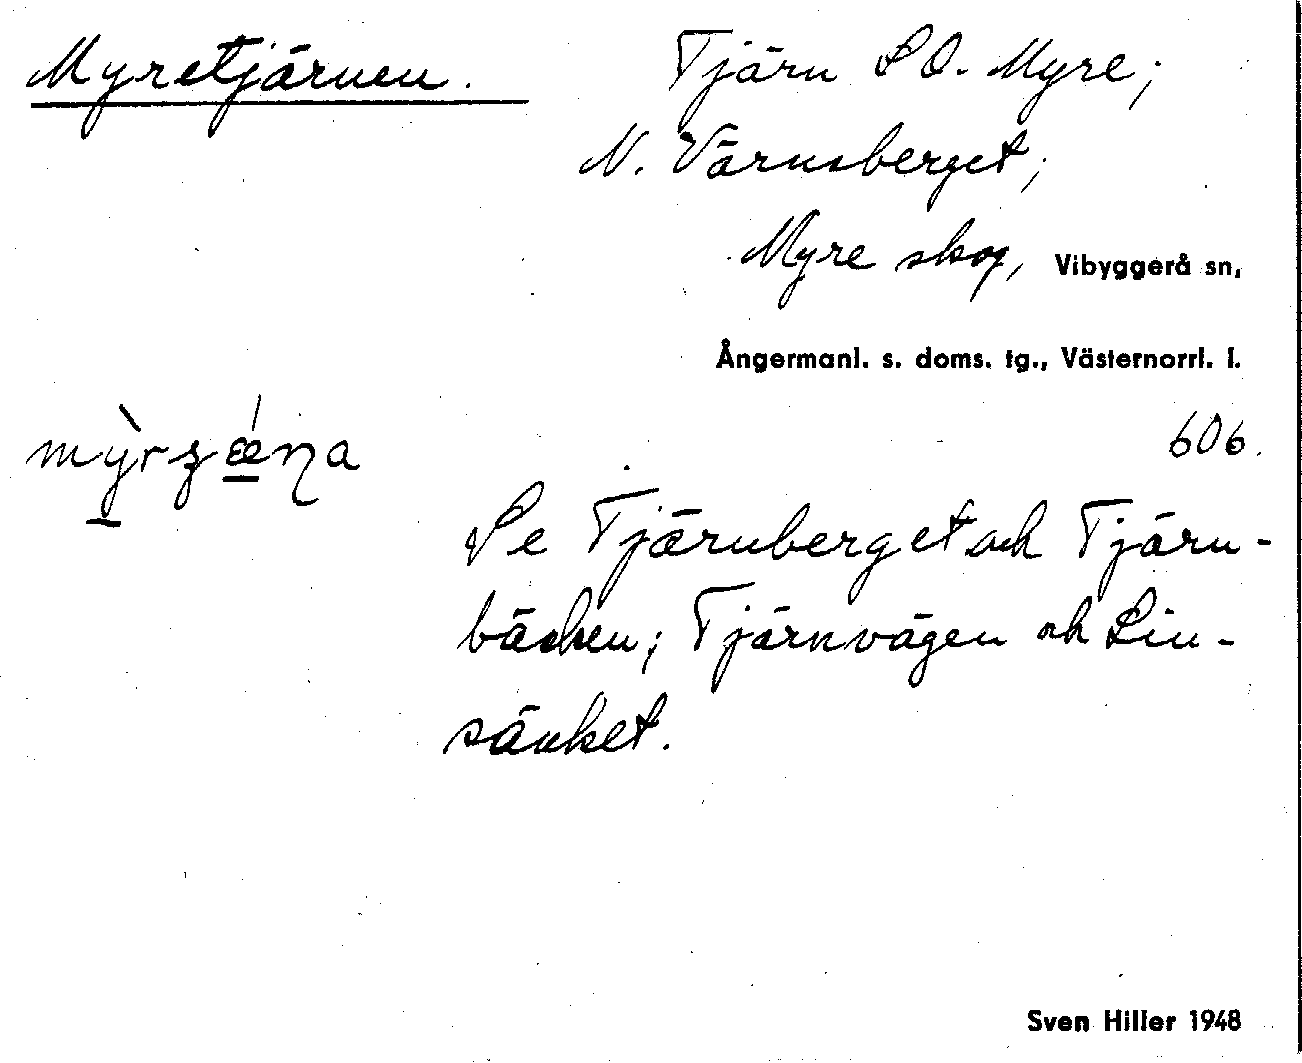 Myretjärnen.
Tjärn SO. Myre;
N. Värnsberget;
Myre skog, Vibyggerå sn,
Ångermanl. s. doms. tg., Västernorrl. l.
606.
Se Tjärnberget och Tjärn-
bäcken; Tjärnvägen och Lin-
sänket.
Sven Hiller 1948